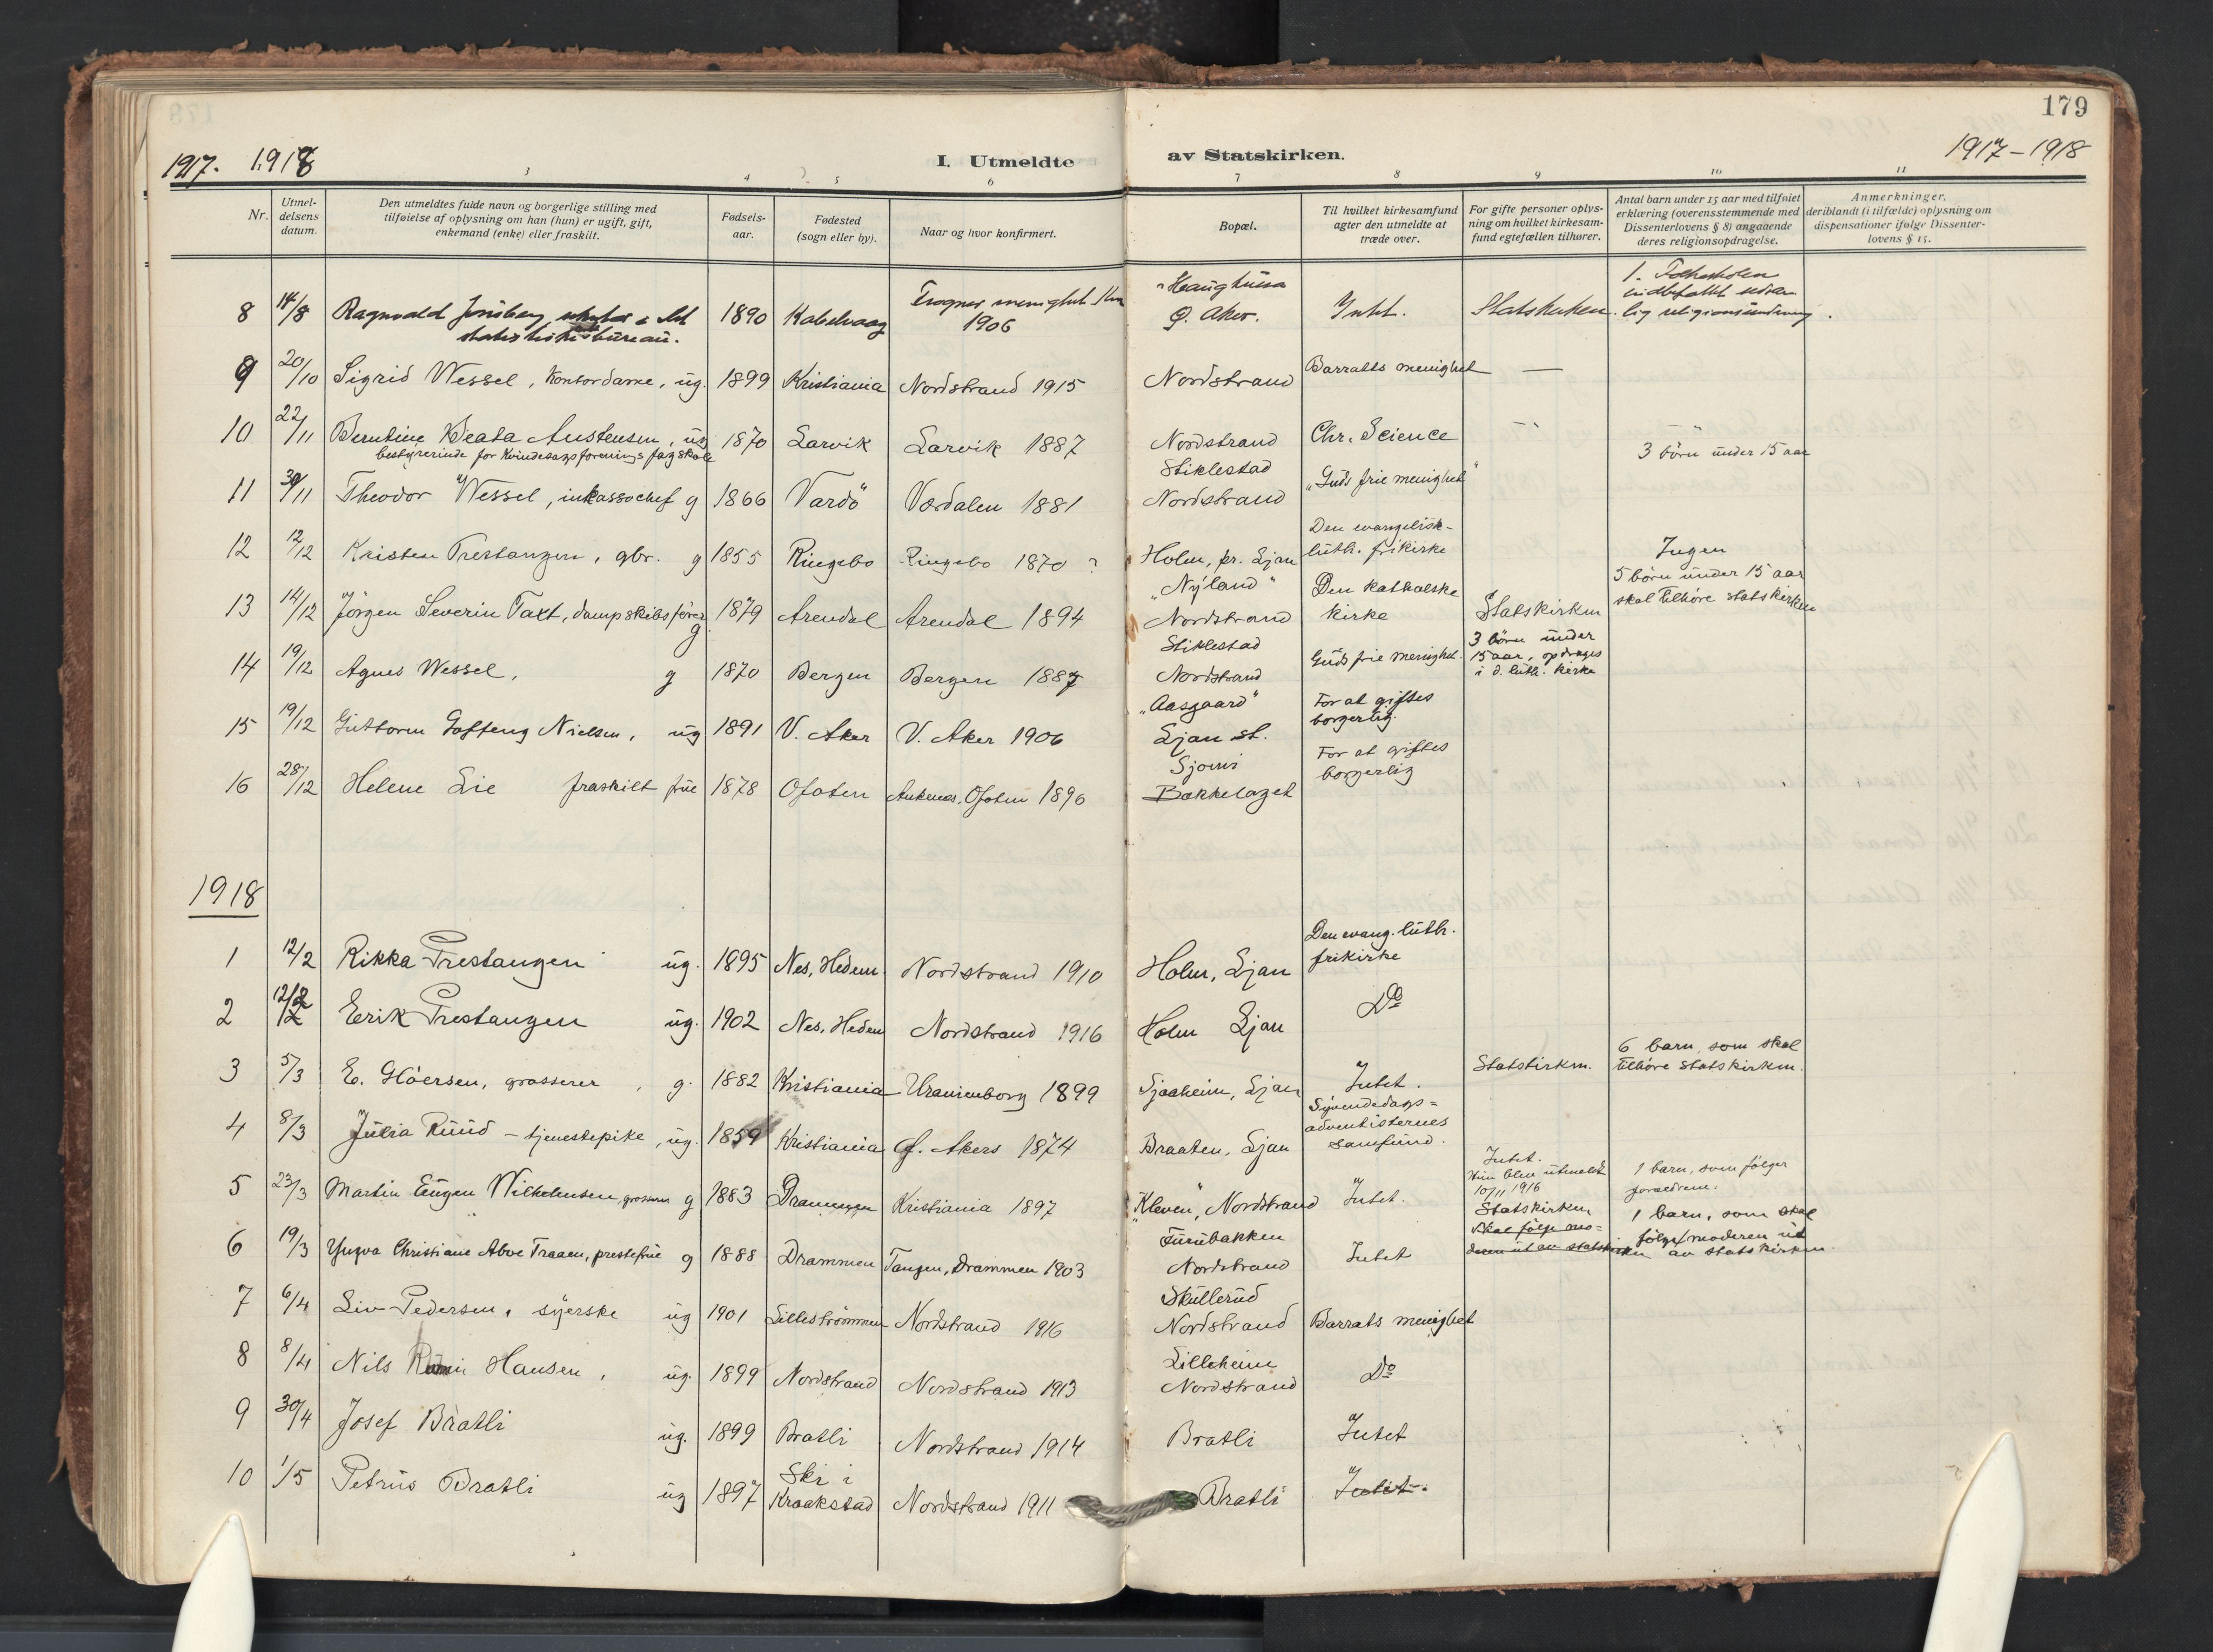 179
1917. 1918
I. Utmeldte av Statskirken.
1917-1918
3 4 5 6 7 8 9 10 11
Nr. | Utmeldelsens datum. | Den utmeldtes fulde navn og borgerlige stilling med tilføielse af oplysning om han (hun) er ugift, gift, enkemand (enke) eller fraskilt. | Fødselsaar. | Fødested (sogn eller by). | Naar og hvor konfirmert. | Bopæl. | Til hvilket kirkesamfund agter den utmeldte at træde over. | For gifte personer oplysning om hvilket kirkesamfund egtefællen tilhører. | Antal barn under 15 aar med tilføiet erklæring (overensstemmende med Dissenterlovens § 8) angaaende deres religionsopdragelse. | Anmerkninger, deriblandt (i tilfælde) oplysning om dispensationer ifølge Dissenterlovens § 15.
8 14/8 Ragnvald 1890 Kabelvaag Frogner menighet 1906 Ø. Aker. Intet. Statskirken. 1. Folkeskolen
statistiske bureau.
9 20/10 Sigrid Wessel, kontordame, ug. 1899 Kristiania Nordstrand 1915 Nordstrand Barratts menighet —
10 22/11 Berntine Beata Austensen, ug 1870 Larvik Larvik 1887 Nordstrand Chr. Science
bestyrerinde for Kvindesagsforenings fagskole
11 30/11 Theodor Wessel, inkassochef g 1866 Vardö Værdalen 1881 Stiklestad Nordstrand "Guds frie menighet" 3 börn under 15 aar
12 12/12 Kristen Trestangen, gbr. g 1855 Ringebo Ringebo 1870 ? Holm, pr. Ljan Den evangelisk-luth. frikirke Ingen
13 14/12 Jörgen Severin Taxt, dampskibsförer g 1879 Arendal Arendal 1894 "Nyland" Nordstrand Den katholske kirke Statskirken 5 börn under 15 aar skal tilhöre statskirken
14 19/12 Agnes Wessel, g 1870 Bergen Bergen 1887 Stiklestad Nordstrand Guds frie menighet. 3 börn under 15 aar, opdrages i d. luth. kirke
15 19/12 Guttorm Nielsen, ug 1891 V. Aker V. Aker 1906 "Aasgaard" Ljan st. For at giftes borgerlig.
16 28/12 Helene Lie fraskilt frue 1878 Ofoten Ankenes, Ofoten 1896 Bækkelaget For at giftes borgerlig
1918
1 12/2 Rikka Trestangen ug. 1895 Nes, Hedem. Nordstrand 1910 Holm, Ljan Den evang. luth. frikirke
2 12/2 Erik Trestangen ug. 1902 Nes, Hedem Nordstrand 1916 Holm Ljan Do
3 5/3 E. Glöersen, grosserer, g. 1882 Kristiania Uranienborg 1899 Sjøheim, Ljan Intet. Statskirken. 6 barn, som skal tilhöre statskirken.
4 8/3 Julia Ruud - tjenestepike, ug. 1859 Kristiania G. Akers 1874 Braaten, Ljan Syvendedags-adventisternes samfund.
5 23/3 Martin Eugen Wilhelmsen, grosserer g 1883 Drammen Kristiania 1897 "Kleven", Nordstrand Intet. Intet. Hun blev utmeldt 10/11 1916 1 barn, som følger forældrene.
6 19/3 Yngva Christiane Abve Traaen, prestefrue g 1888 Drammen Tangen, Drammen 1903 Furubakken Nordstrand Intet Statskirken skal følge moderen ut av statskirken 1 barn, som skal følge moderen ut av statskirken.
7 6/4 Liv Pedersen, syerske ug 1901 Lilleströmmen Nordstrand 1916 Skullerud Nordstrand Barrats menighet
8 8/4 Nils Hansen, ug. 1899 Nordstrand Nordstrand 1913 Lilleheim Nordstrand Do
9 30/4 Josef Bratli ug. 1899 Bratli Nordstrand 1914 Bratli Intet
10 1/5 Petrus Bratli ug 1897 Ski i Kraakstad Nordstrand 1911 Bratli Intet.